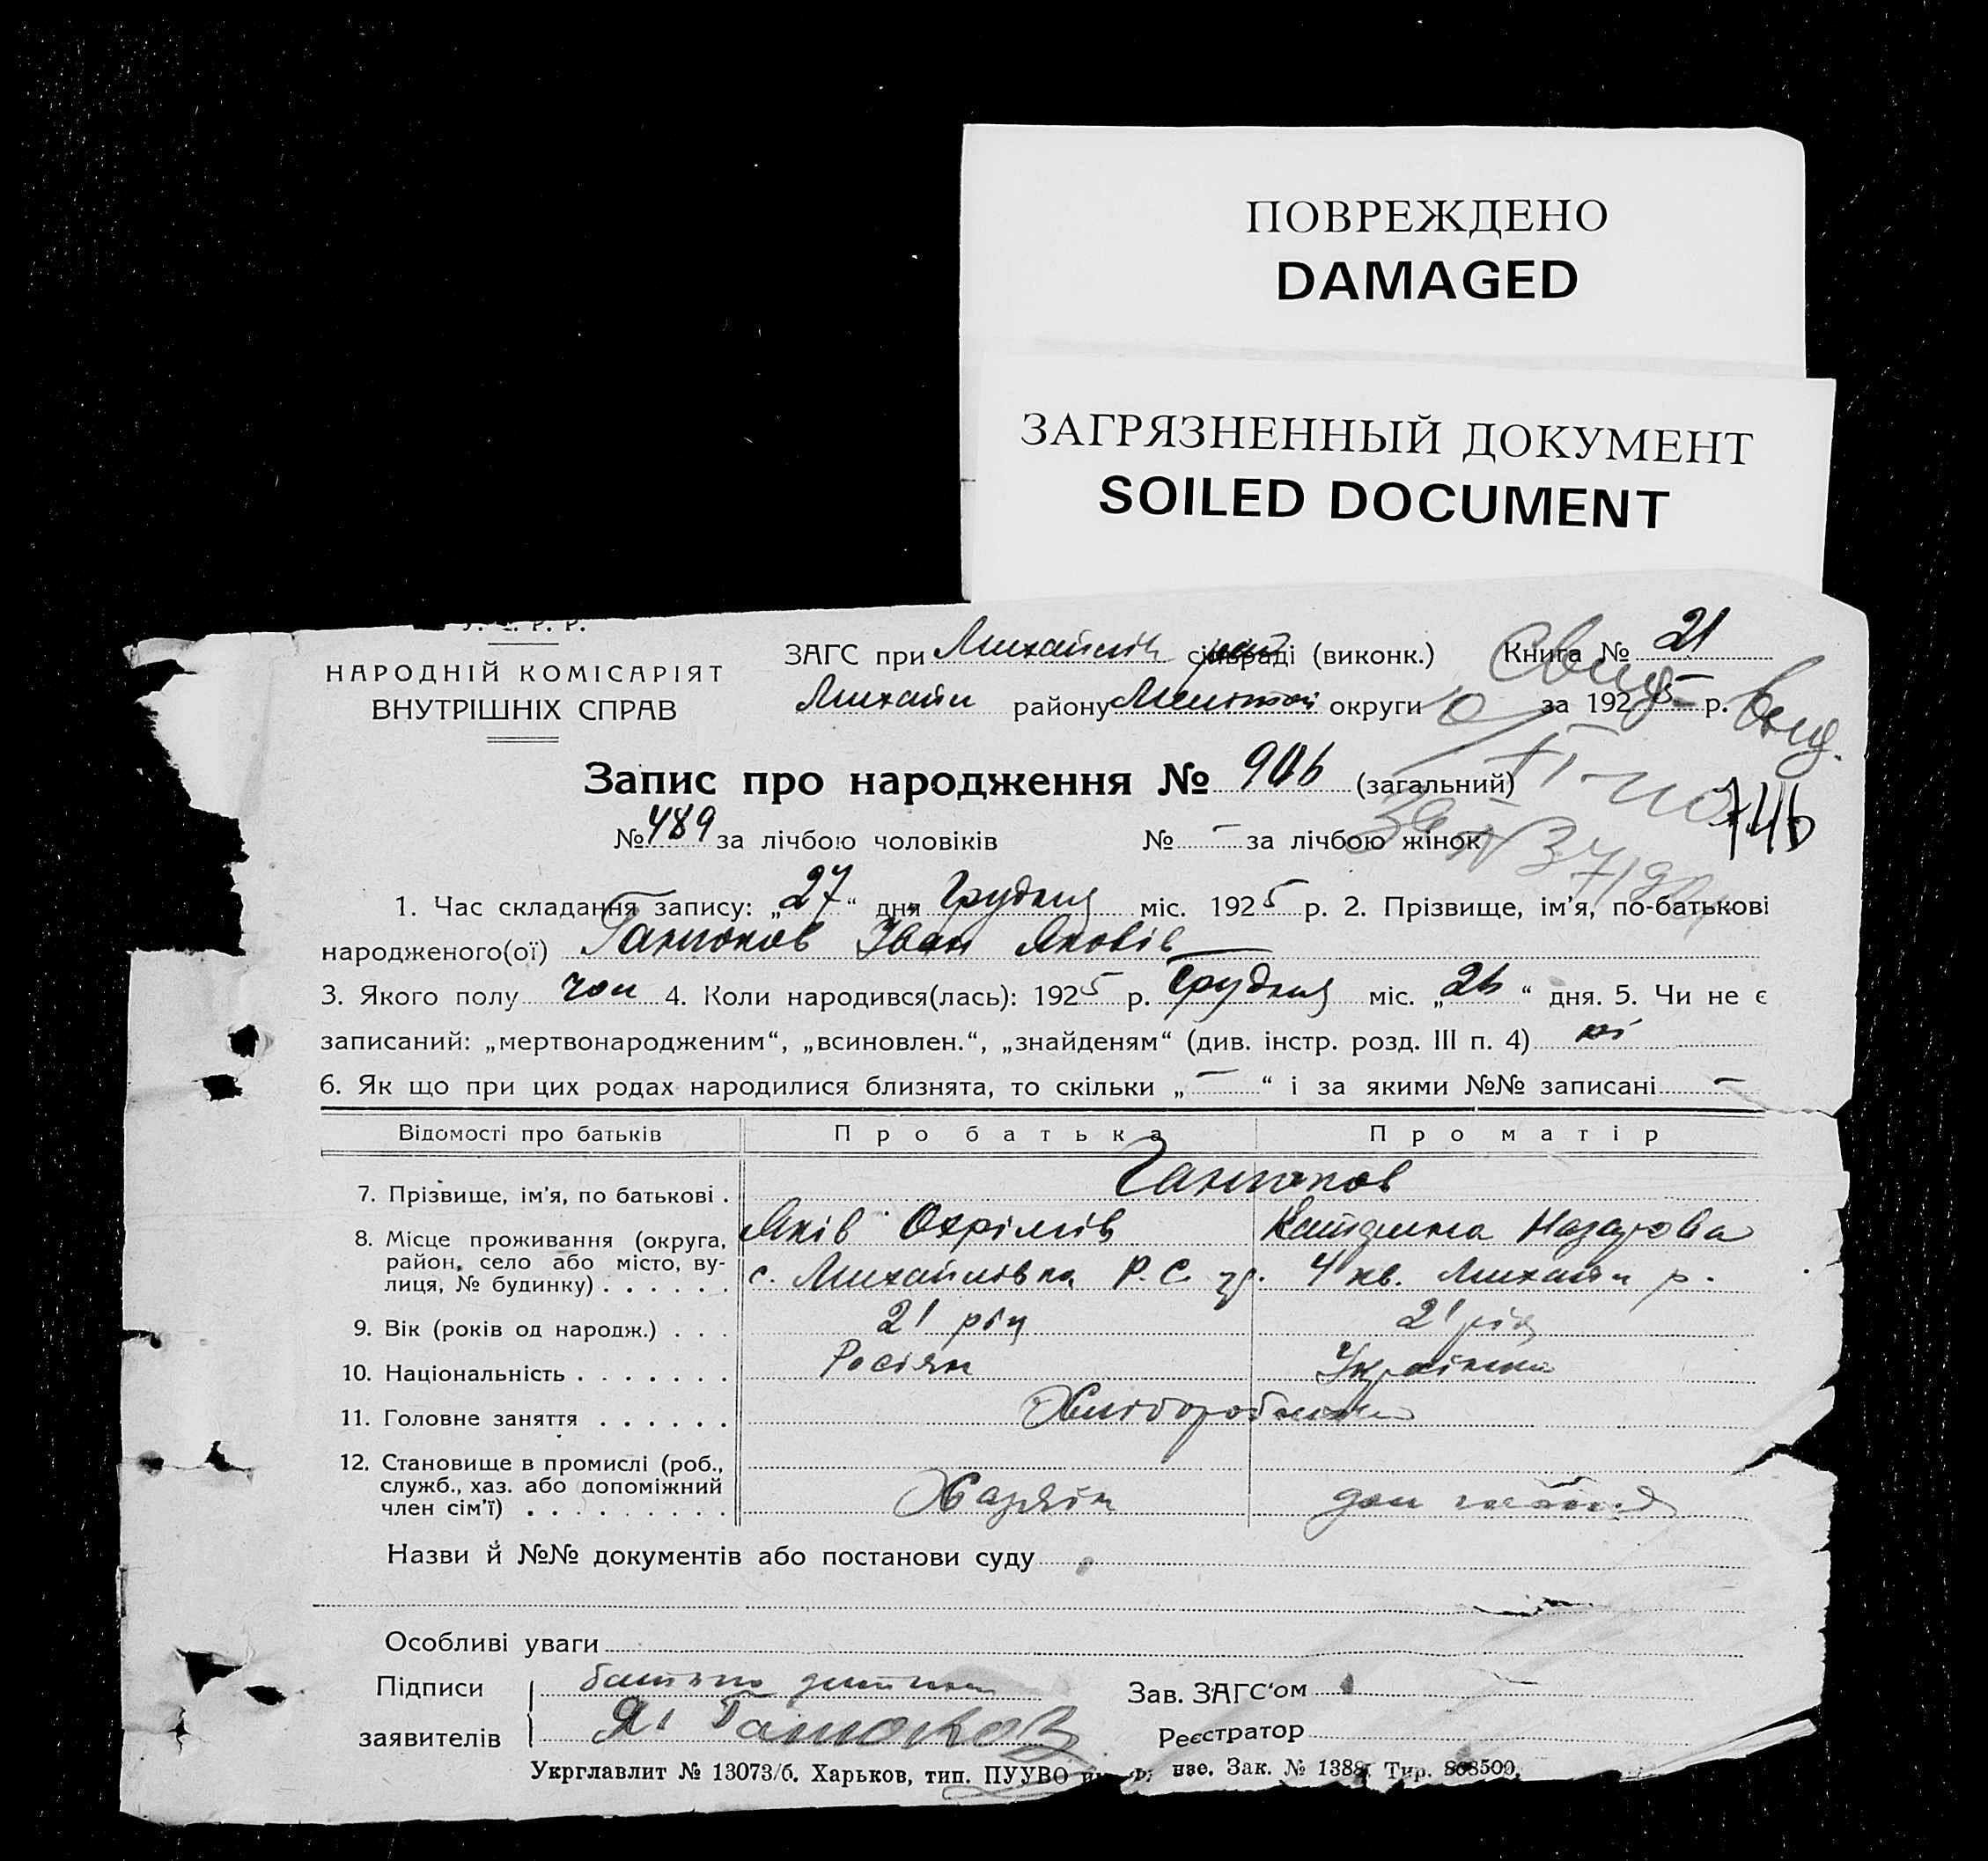 ПОВРЕЖДЕНО
DAMAGED
ЗАГРЯЗНЕННЫЙ ДОКУМЕНТ
SOILED DOCUMENT
НАРОДНІЙ КОМІСАРІЯТ
ВНУТРІШНІХ СПРАВ
ЗАГС при Михайлів сільраді (виконк.) Книга № 21
Михайл району округи за 1925 р.
Запис про народження № 906 (загальний)
746
№ 489 за лічбою чоловіків № – за лічбою жінок
1. Час складання запису: „27“ дня Грудня міс. 1925 р. 2. Прізвище, ім'я, по-батькові
народженого(ої) Іван Яковів
3. Якого полу чол 4. Коли народився(лась): 1925 р. Грудня міс. „26“ дня. 5. Чи не є
записаний: „мертвонародженим“, „всиновлен.“, „знайденям“ (див. інстр. розд. III п. 4) ні
6. Як що при цих родах народилися близнята, то скільки „–“ і за якими №№ записані –
Відомості про батьків Про батька Про матір
7. Прізвище, ім'я, по батькові .
Яків Охрімів Катерина Назарова
8. Місце проживання (округа,
район, село або місто, ву-
лиця, № будинку) . . . . . . с. Михайлівка Р.С. 4 кв. Михайл р.
9. Вік (років од народж.) . . . 21 рік 21 рік
10. Національність . . . . . . . Росіян Українка
11. Головне заняття . . . . . . Хлібороб
12. Становище в промислі (роб.,
служб., хаз. або допоміжний
член сім'ї) . . . . . . . . . Хазяїн
Назви й №№ документів або постанови суду
Особливі уваги
Підписи батько дитини Зав. ЗАГС'ом
заявителів Я. Реєстратор
Укрглавлит № 13073/б. Харьков, тип. ПУУВО Зак. № 1388. Тир. 808500.